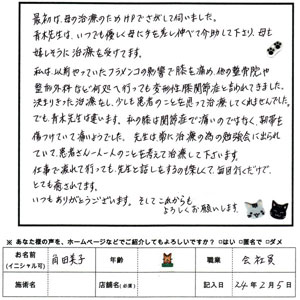 最初は、母の治療のためHPでさがして伺いました。
青木先生は、いつでも優しく母に手を差し伸べて介助して下さり、母も
嬉しそうに治療を受けてます。
私は、以前やっていたフラメンコの影響で膝を痛め、他の整骨院や
整形外科など何処へ行っても変形性膝関節症と言われてきました。
決まりきった治療をし、少しも患者のことを思って治療してくれませんでした。
でも、青木先生は違います。私の膝は関節症で痛いのではなく、靭帯を
傷つけていて痛いようでした。先生は常に治療の為の勉強会に出られ
ていて、患者さん一人一人のことを考えて治療して下さいます。
仕事で疲れて行っても、先生と話しをするのも楽しくて、毎回行くだけで、
とても癒されます。
いつもありがとうございます。そしてこれからも
よろしくお願いします
※ あなた様の声を、ホームページなどでご紹介してもよろしいですか？ □はい □匿名で □ダメ
お名前
(イニシャル可)
角田美子
年齢
職業
会社員
施術名
店舗名(必須)
記入日
24年2月5日